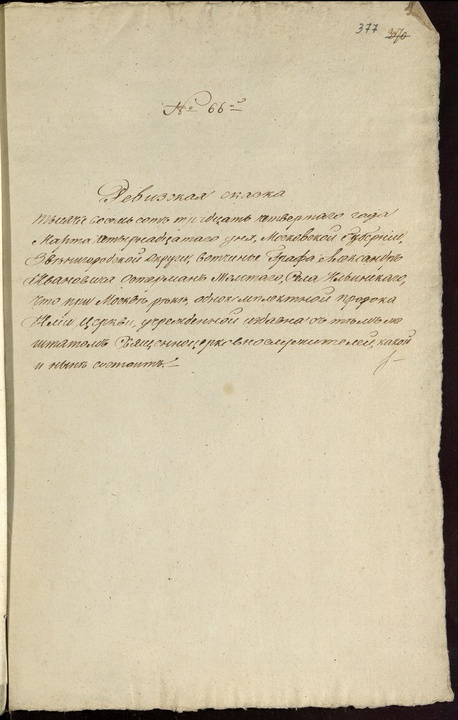 377 370
№ 66-й
Ревизская сказка
тысяча восемь сотъ тридцать четвертаго года
Марта четырнадцатаго дня, Московской Губернiи,
Звѣнигородской Округи, вотчины Графа Александръ
Ивановича Остермана Толстаго, Села Ильинскаго,
что при Москвѣ рѣкѣ, однокомплектной пророка
Илiи Церкви, учрежденной издавна съ тѣмъ же
штатомъ Священноцерковнослужителей, какой
и нынѣ состоитъ.